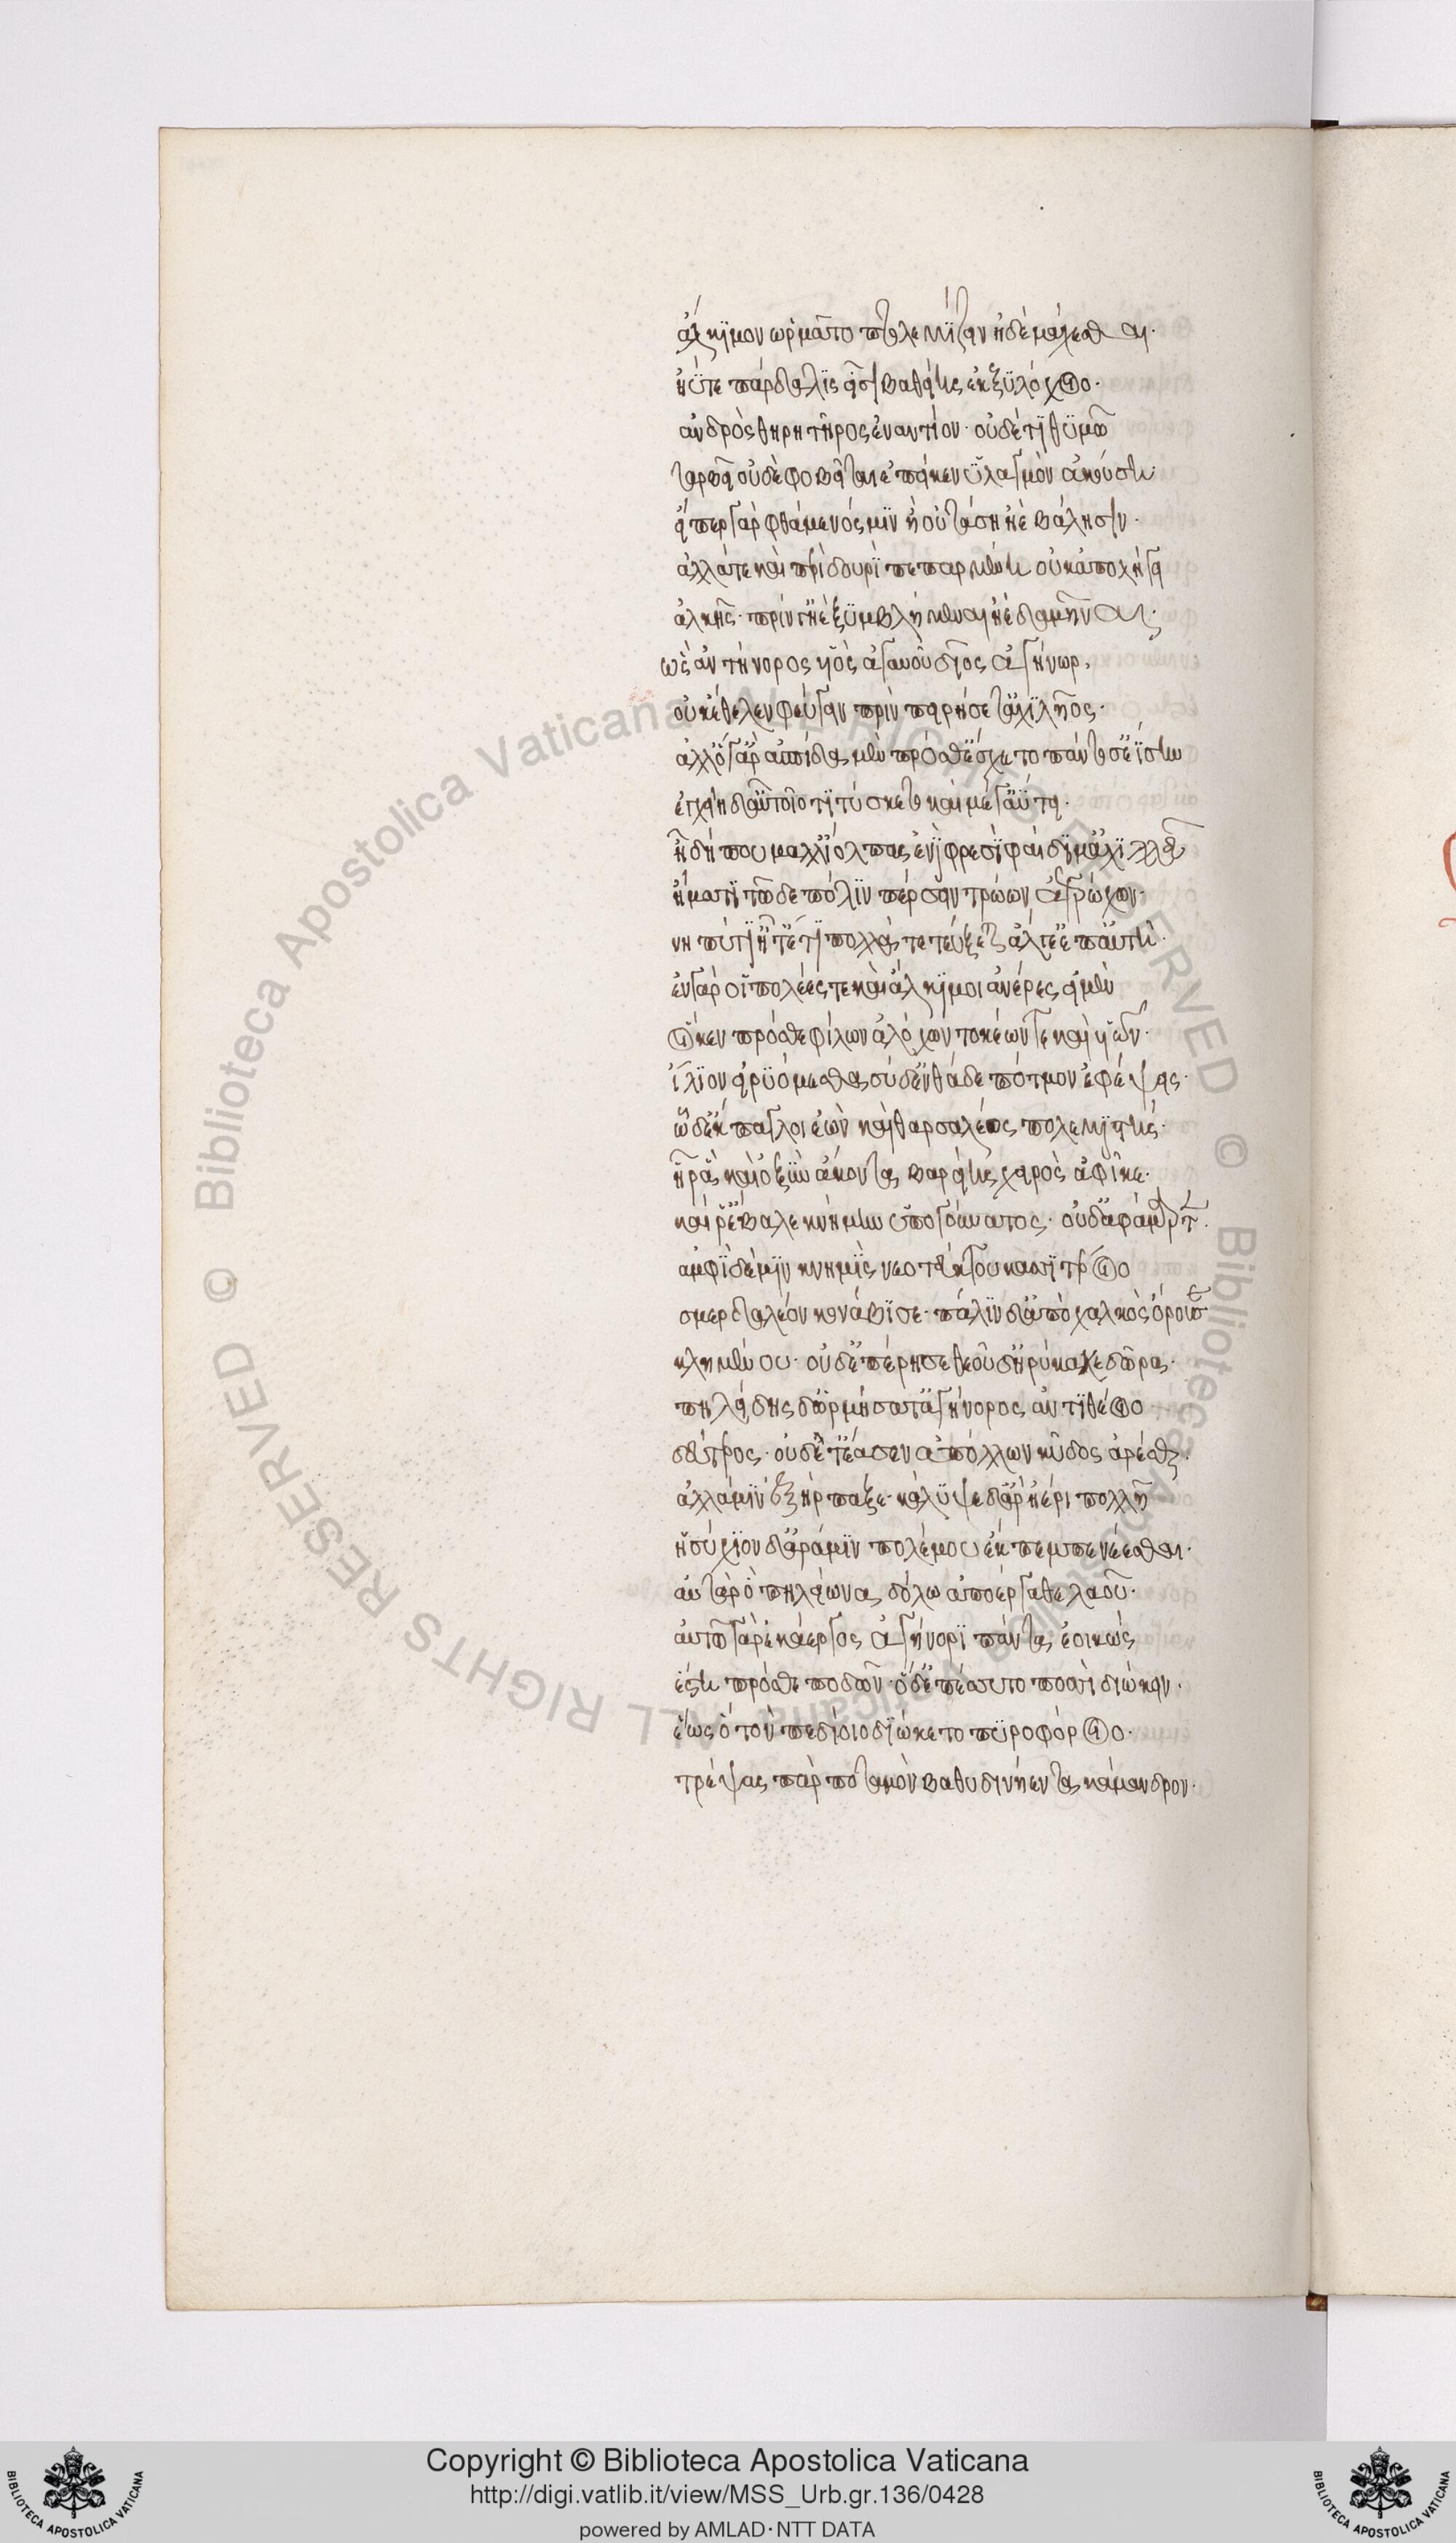 ἄλκϊμον ὡρμᾶτο πτολεμΐζειν ἠδὲ μάχεσθαι·
ἠΰτε πάρδαλϊς εἶσι βαθείης ἐκ ξϋλόχοιο·
ἀνδρὸς θηρητῆρος ἐναντίον· οὐδέ τϊ θϋμῶ
ταρβεῖ οὐδὲ φοβεῖται ἐπεί κεν ϋλαγμὸν ἀκούση·
εἴπερ γὰρ φθάμενός μϊν ἢ οὐτάση ἠὲ βάλησιν·
ἀλλά τε καὶ περὶ δουρὶ πεπαρμένη οὐκ ἀπολήγει
ἀλκῆς· πρίν γ' ἠὲ ξϋμβλήμεναι ἠὲ δαμῆναι·
ὣς ἀντήνορος υἱὸς ἀγαυοῦ δῖος ἀγήνωρ,
οὐκ ἔθελεν φεύγειν πρὶν πειρήσετ' ἀχϊλῆος·
ἀλλ' ὅγ' ἄρ' ἀσπίδα μὲν πρόσθ' ἔσχετο πάντοσ' ἐΐσην
ἐγχείη δ' αὐτοῖο τϊτύσκετο καὶ μέγ' ἀΰτει·
ἦ δή που μάλ' ἔολπας ἐνὶ φρεσὶ φαίδϊμ' ἀχϊλλεῦ
ἤματϊ τῶδε πόλϊν πέρσειν τρώων ἀγερώχων·
νηπύτϊ' ἦ τ' ἔτϊ πολλὰ τετεύξεται ἄλγε' ἐπ' αὐτῆ·
ἐν γάρ οἱ πολέες τε καὶ ἄλκϊμοι ἀνέρες εἰμὲν
οἵ κεν πρόσθε φίλων ἀλόχων τοκέων τε καὶ υἱῶν·
ἴλϊον εἰρϋόμεσθα, σὺ δ' ἐνθάδε πότμον ἐφέψεις·
ὧδ' ἔκπαγλος ἐὼν καὶ θαρσαλέος πολεμϊστής·
ἦ ῥα καὶ ὀξὺν ἄκοντα βαρείης χειρὸς ἀφῆκε·
καί ῥ' ἔβαλε κνήμην ϋπὸ γούνατος· οὐδ' ἀφάμαρτεν·
ἀμφὶ δέ μϊν κνημὶς νεοτεύκτου κασσϊτέροιο
σμερδαλέον κονάβϊσε· πάλϊν δ' ἀπὸ χαλκὸς ὄρουσε
βλημένου· οὐδ' ἐπέρησε θεοῦ δ' ἠρύκακε δῶρα·
πηλείδης δ' ὡρμήσατ' ἀγήνορος ἀντϊθέοιο
δεύτερος· οὐδέ τ' ἔασεν ἀπόλλων κῦδος ἀρέσθαι·
ἀλλά μϊν ἐξήρπαξε· κάλϋψε δ' ἄρ' ἠέρι πολλῆ
ἡσύχϊον δ' ἄρα μϊν πολέμου ἔκπεμπε νέεσθαι·
αὐτὰρ ὁ πηλείωνα δόλω ἀποέργαθε λαοῦ·
αὐτῶ γὰρ ἑκάεργος ἀγήνορϊ πάντα ἐοικὼς
ἔστη πρόσθε ποδῶν· ὁ δ' ἐπέσσυτο ποσσὶ διώκειν·
ἕως ὁ τὸν πεδίοιο δϊώκετο πϋροφόροιο·
τρέψας πὰρ ποταμὸν βαθυδινήεντα κάμανδρον·
Copyright © Biblioteca Apostolica Vaticana
http://digi.vatlib.it/view/MSS_Urb.gr.136/0428
powered by AMLAD·NTT DATA